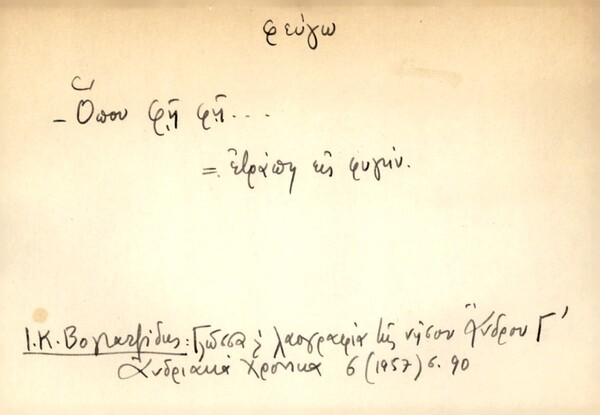 φεύγω
– Ὅπου φῆ φῆ...
= ἐτράπη εἰς φυγήν.
Ι.Κ. Βογιατζίδης: Γλῶσσα & λαογραφία τῆς νήσου Ἄνδρου Γ'
Ἀνδριακὰ Χρονικὰ 6 (1957) σ. 90